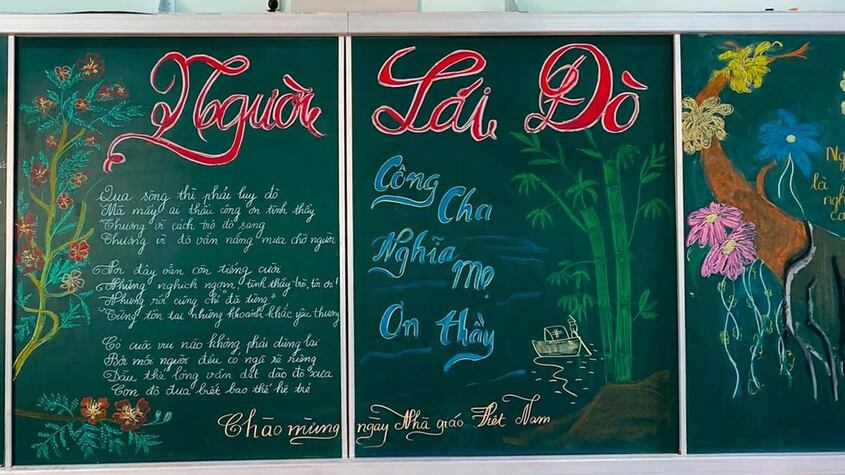 Người Lái Đò
Qua sông thì phải lụy đò
Mà mấy ai thấu công ơn tình thầy
Thương vì cách trò đò sang
Thương vì đò vẫn nắng mưa chờ người
Nơi đây vẫn còn tiếng cười
Những nghịch ngợm, tình thầy trò, tôi ơi!
Nhưng rồi cũng chỉ "đã từng"
Từng tồn tại những khoảnh khắc yêu thương
Có cuộc vui nào không phải dừng lại
Bởi mỗi người đều có ngã rẽ riêng
Dẫu thế lòng vẫn dắt dào đò xưa
Con đò đưa biết bao thế hệ trẻ
Công Cha
Nghĩa Mẹ
Ơn thầy
Chào mừng ngày Nhà giáo Việt Nam
Ng
là
ngh
ca